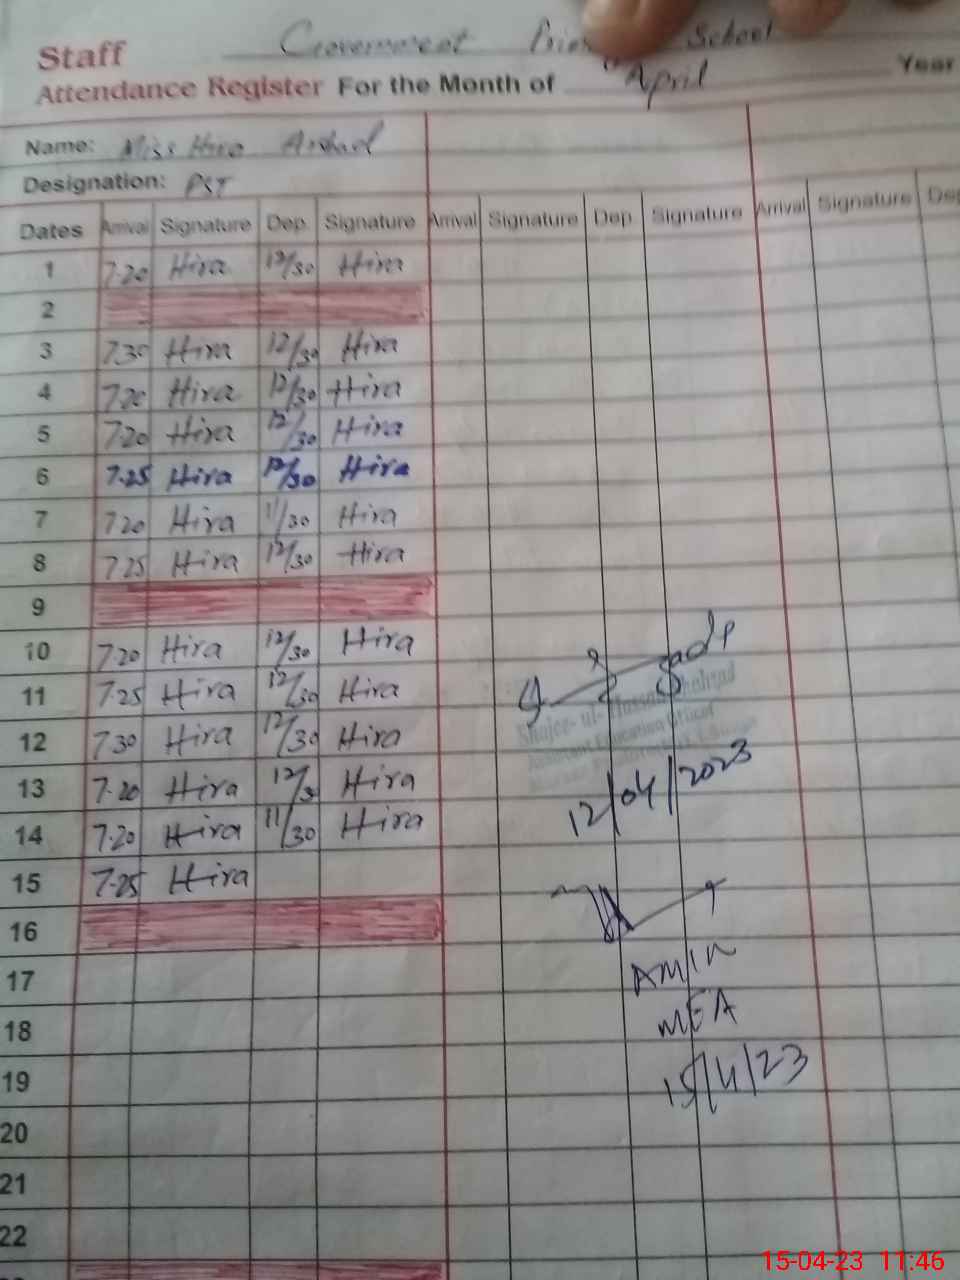 Government School
Staff
Attendance Register For the Month of April Year
Name: Miss Hira Arshad
Designation: PST
Dates Arrival Signature Dep. Signature Arrival Signature Dep Signature Arrival Signature Dep
1 7.20 Hira 12/30 Hira
2
3 7.30 Hira 12/30 Hira
4 7.20 Hira 12/30 Hira
5 7.20 Hira 12/30 Hira
6 7.25 Hira 12/30 Hira
7 7.20 Hira 11/30 Hira
8 7.25 Hira 12/30 Hira
9
10 7.20 Hira 12/30 Hira
11 7.25 Hira 12/30 Hira
12 7.30 Hira 12/30 Hira
13 7.20 Hira 12/3 Hira
14 7.20 Hira 11/30 Hira
15 7.25 Hira
16
17
18
19
20
21
22
Shajee-ul-Hassan
Assistant Education Officer
12/04/2023
AMIN
MEA
15/4/23
15-04-23 11:46